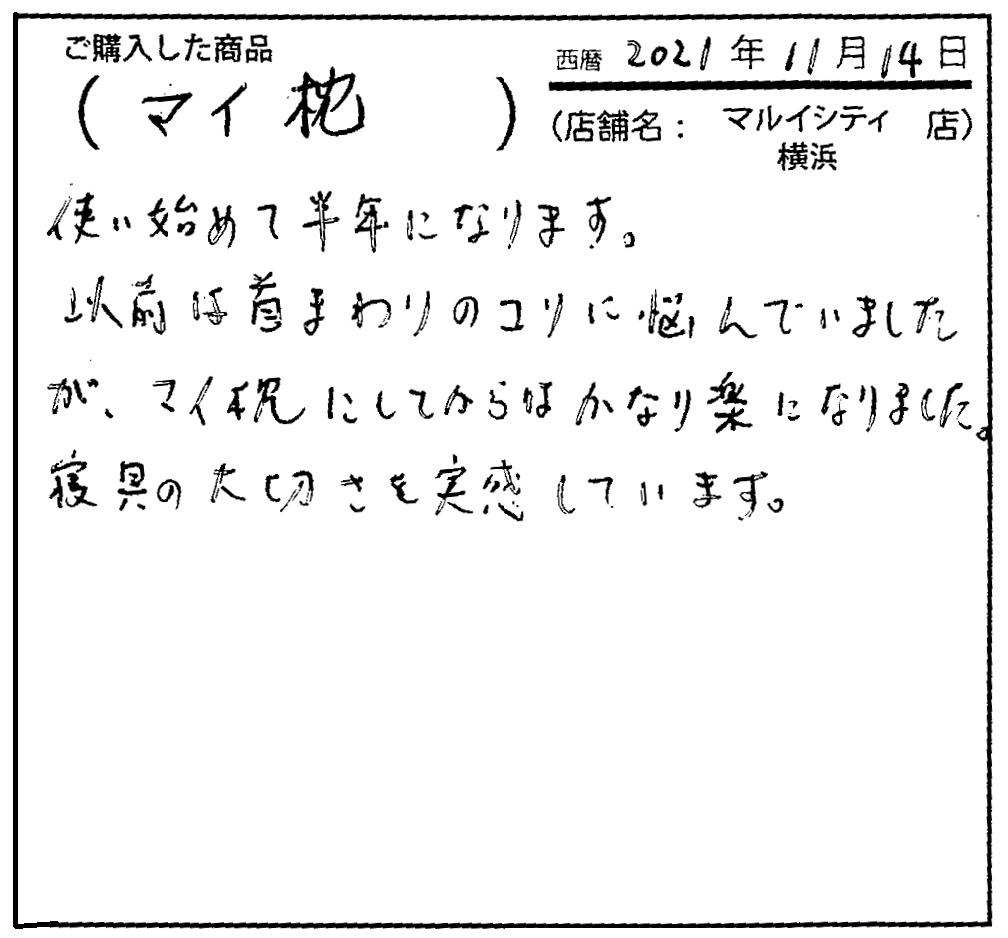 ご購入した商品
(マイ枕)
西暦 2021年11月14日
(店舗名： マルイシティ 店)
横浜
使い始めて半年になります。
以前は首まわりのコリに悩んでいました
が、マイ枕にしてからはかなり楽になりました。
寝具の大切さを実感しています。